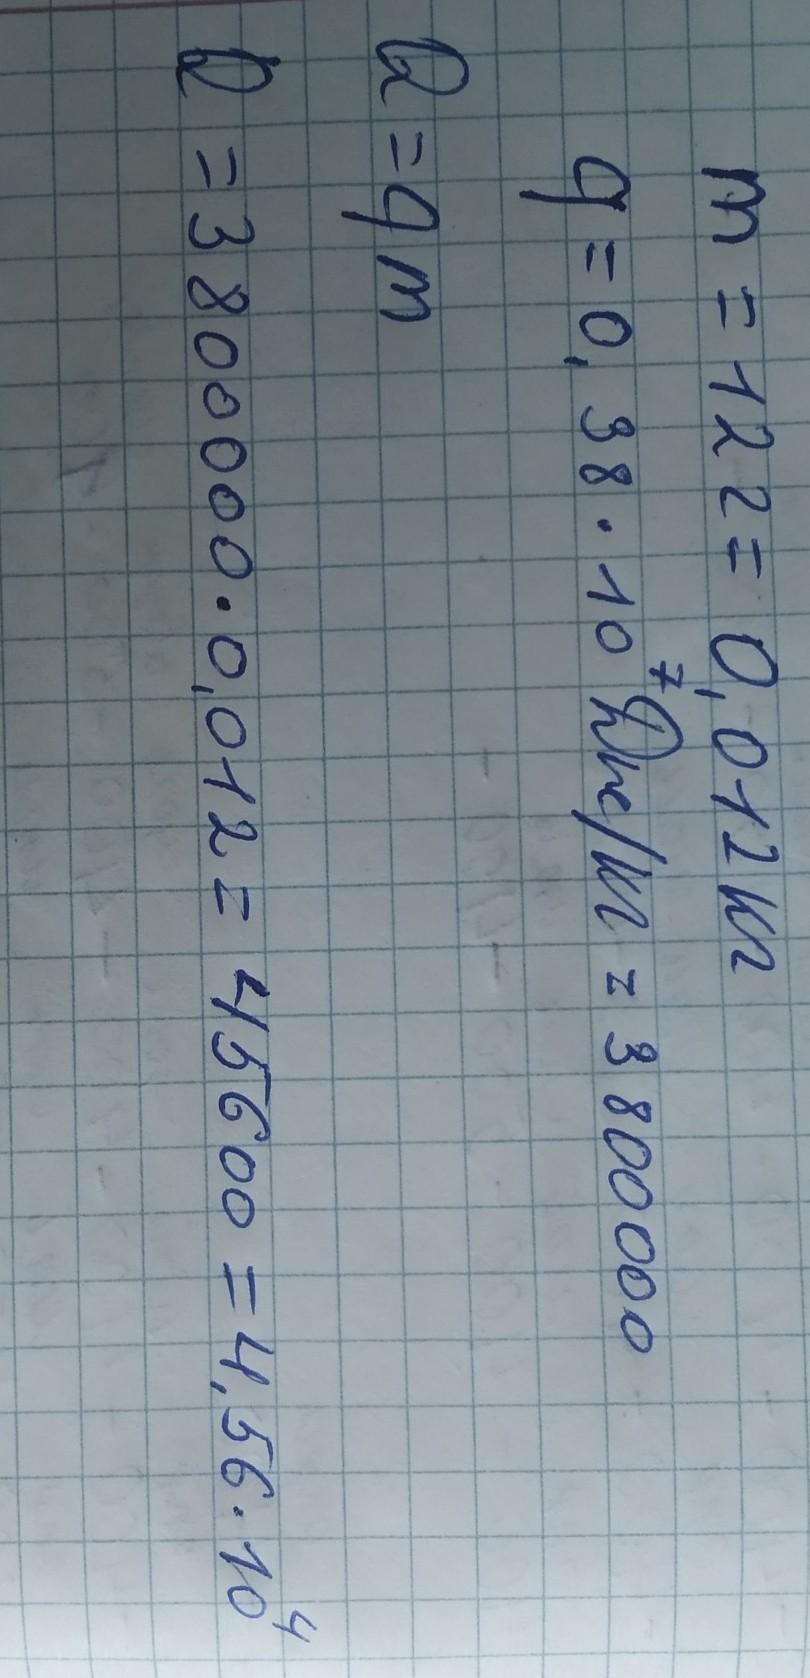 m = 12 г = 0,012 кг
q = 0,38 · 10⁷ Дж/кг = 3800000
Q = qm
Q = 3800000 · 0,012 = 45600 = 4,56 · 10⁴